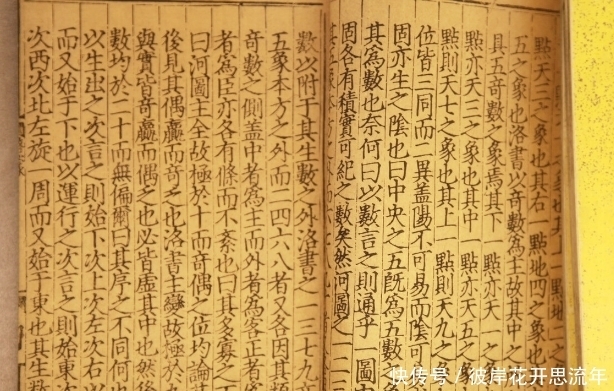 象也其上一點地二之
點天三之象也其右一點地四之象也
五之象也洛書以奇數爲主故其中之
具五奇數之象焉其下一點亦天一之
點亦天三之象也其中一點亦天五之
點則天七之象也其上一點則天九之象
位皆三同而二異蓋陽不可易而陰可
固亦生之陰也曰中央之五旣爲五數
其爲數也奈何曰以數言之則通乎一圖
固各有積實可紀之數矣然河圖之一
數以附于其生數之外洛書之一三七九
五象本方之外而二四六八者又各因其
奇數之側蓋中者爲主而外者爲客正者
者爲臣亦各有條而不紊也曰其多寡之
曰河圖主全故極於十而奇偶之位均論
後見其偶贏而奇乏也洛書主變故極於
與實皆奇贏而偶乏也必皆虛其中也然後
數均於二十而無偏爾曰其序之不同何也
以生出之次言之則始下次上次左次右
而又始于下也以運行之次言之則始東次
次西次北左旋一周而又始于東也其生數
快传号/彼岸花开思流年